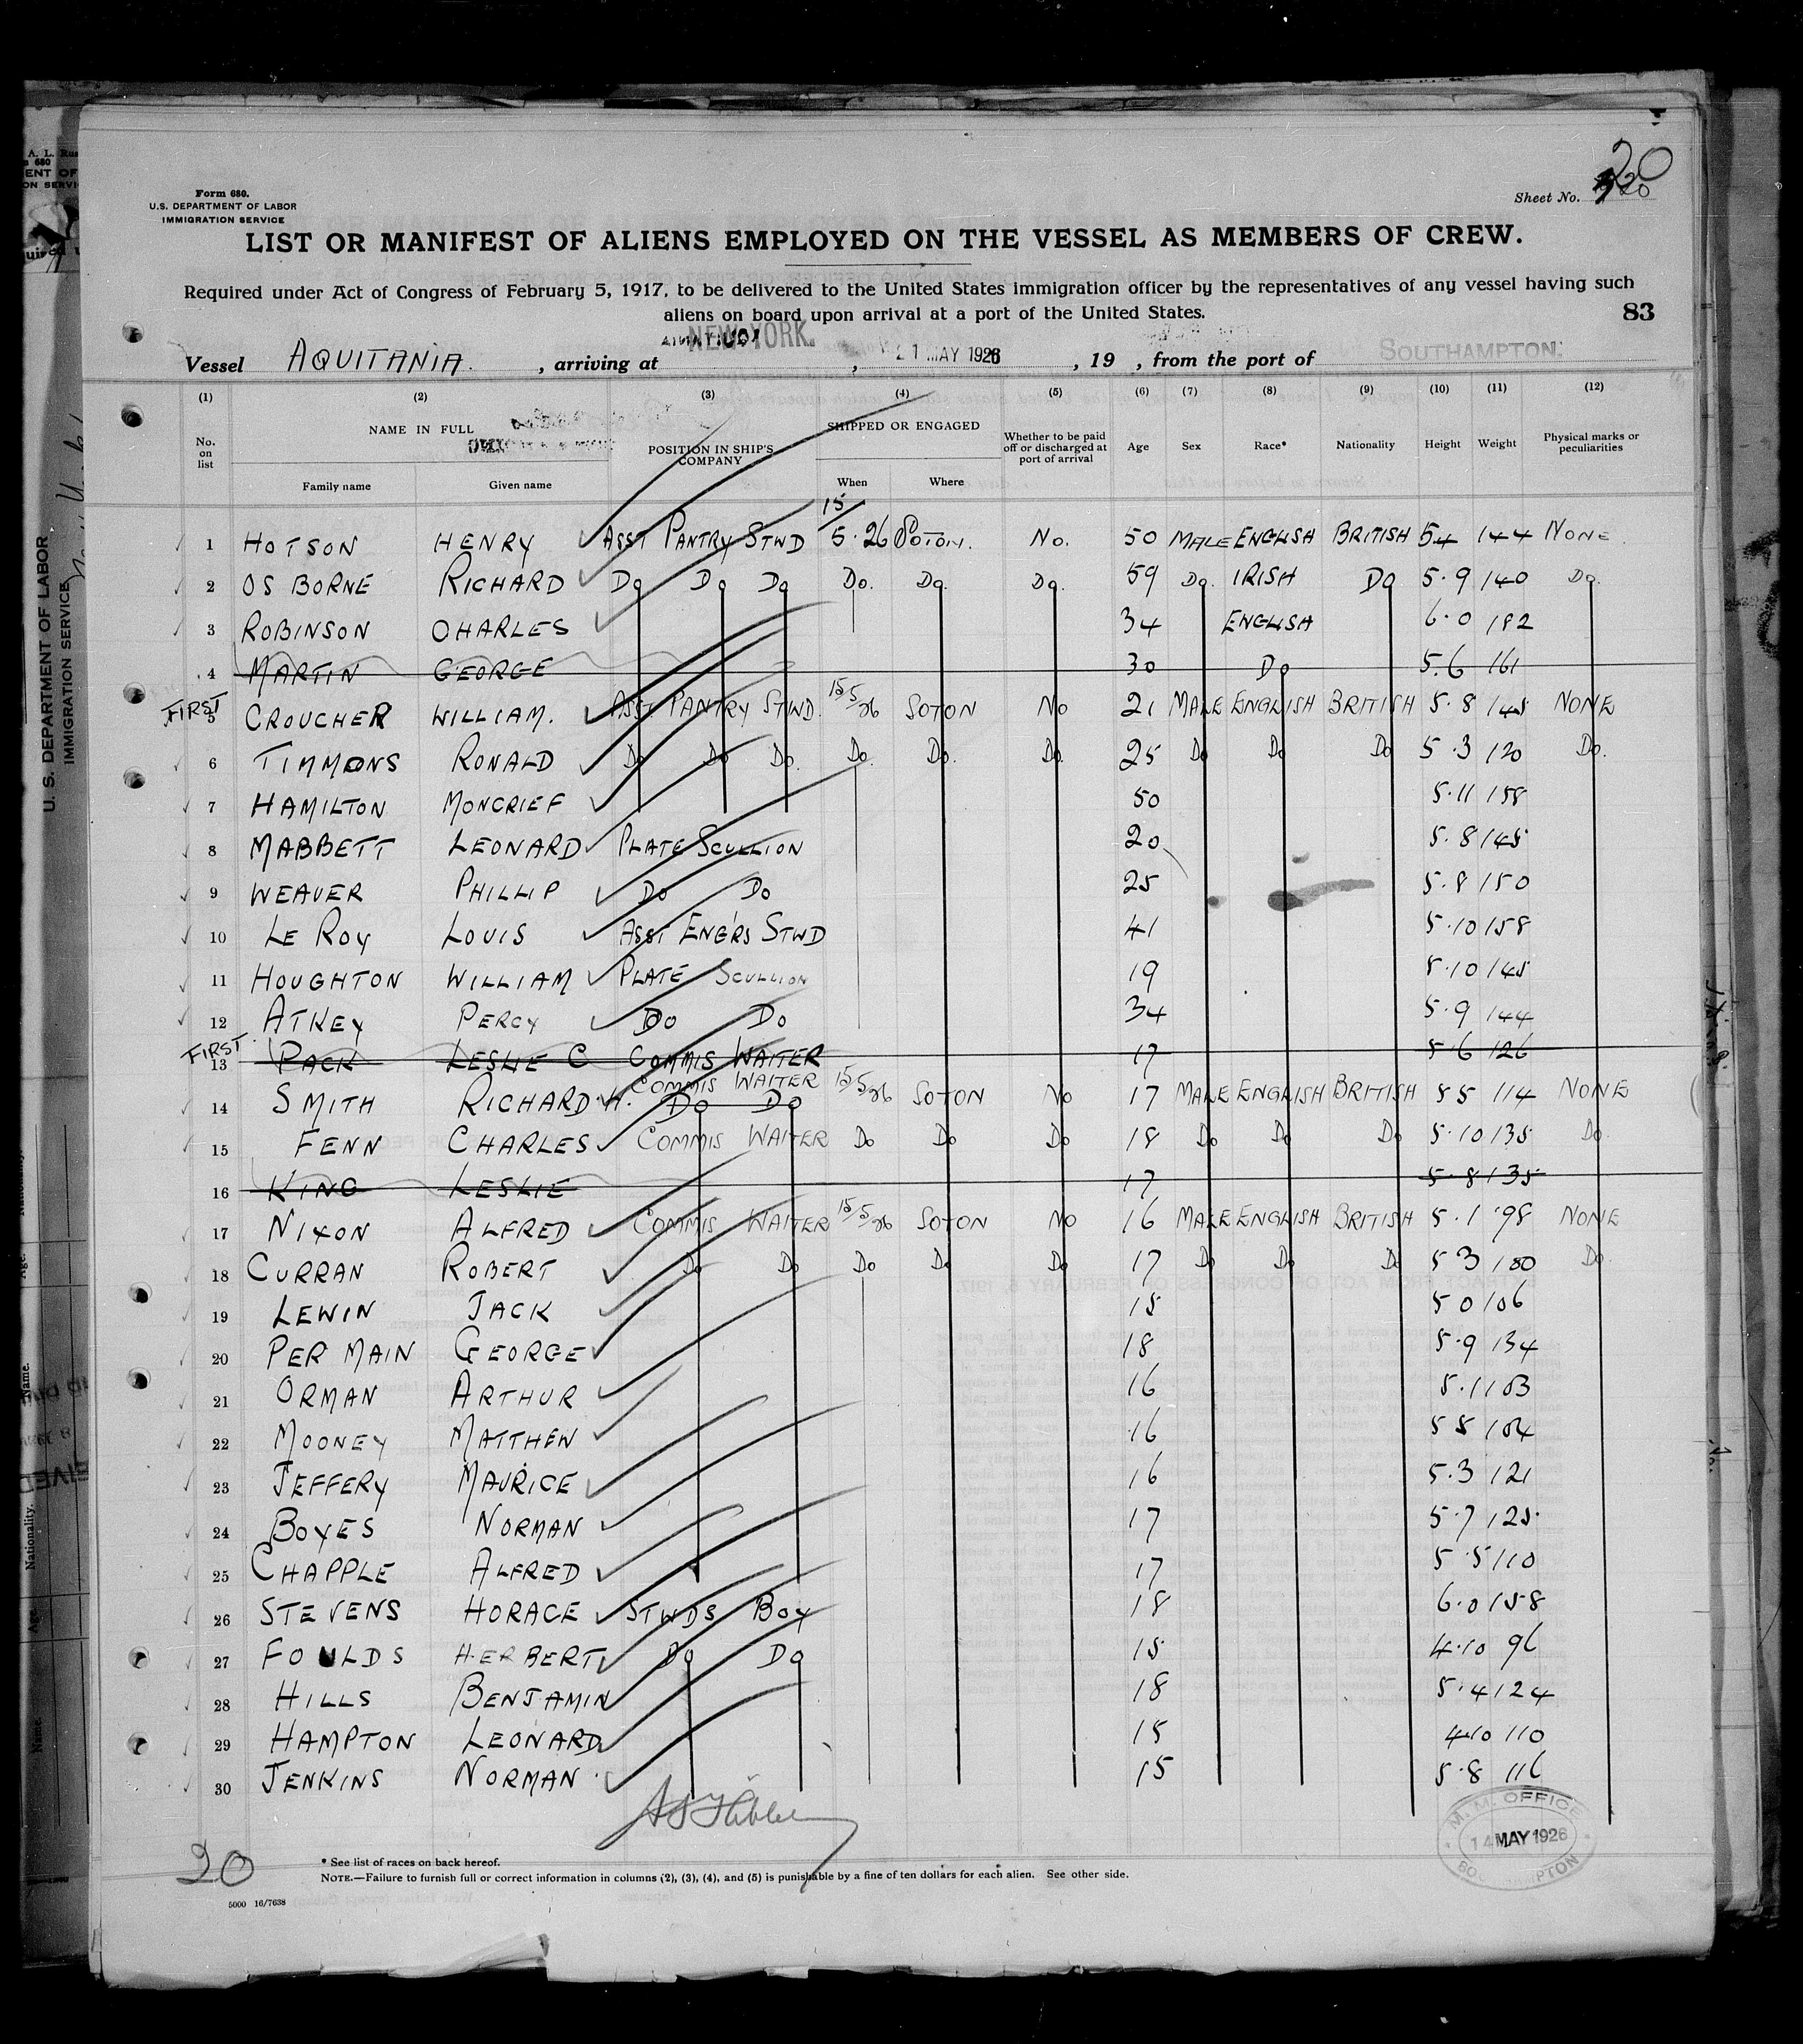 Form 680.
U.S. DEPARTMENT OF LABOR
IMMIGRATION SERVICE
Sheet No. 20
20
LIST OR MANIFEST OF ALIENS EMPLOYED ON THE VESSEL AS MEMBERS OF CREW.
Required under Act of Congress of February 5, 1917, to be delivered to the United States immigration officer by the representatives of any vessel having such
aliens on board upon arrival at a port of the United States.
83
Vessel AQUITANIA. , arriving at NEW YORK. , 21 MAY 1926 , 19 , from the port of SOUTHAMPTON.
(1) (2) (3) (4) (5) (6) (7) (8) (9) (10) (11) (12)
No. on list NAME IN FULL POSITION IN SHIP'S COMPANY SHIPPED OR ENGAGED Whether to be paid off or discharged at port of arrival Age Sex Race* Nationality Height Weight Physical marks or peculiarities
Family name Given name When Where
1 HOTSON HENRY ASST PANTRY STWD 15/5.26 SOTON. No. 50 MALE ENGLISH BRITISH 5.4 144 NONE
2 OSBORNE RICHARD Do Do Do Do. Do. Do. 59 Do. IRISH Do 5.9 140 Do.
3 ROBINSON CHARLES 34 ENGLISH 6.0 182
4 MARTIN GEORGE 30 Do 5.6 161
FIRST
5 CROUCHER WILLIAM. ASST PANTRY STWD. 15/5/26 SOTON No 21 MALE ENGLISH BRITISH 5.8 145 NONE
6 TIMMONS RONALD Do Do Do. Do. Do. Do. 25 Do Do Do 5.3 120 Do.
7 HAMILTON MONCRIEF 50 5.11 158
8 MABBETT LEONARD PLATE SCULLION 20 5.8 145
9 WEAVER PHILLIP Do Do 25 5.8 150
10 LE ROY LOUIS ASST ENGRS STWD 41 5.10 158
11 HOUGHTON WILLIAM PLATE SCULLION 19 5.10 145
12 ATKEY PERCY Do Do 34 5.9 144
FIRST
13 PACK LESLIE C COMMIS WAITER 17 5.6 126
14 SMITH RICHARD H. COMMIS WAITER Do Do 15/5/26 SOTON No 17 MALE ENGLISH BRITISH 5 5 114 NONE
15 FENN CHARLES COMMIS WAITER Do Do Do 18 Do Do Do 5.10 135 Do
16 KING LESLIE 17 5.8 135
17 NIXON ALFRED COMMIS WAITER 15/5/26 SOTON No 16 MALE ENGLISH BRITISH 5.1 98 NONE
18 CURRAN ROBERT Do Do Do Do Do 17 Do Do Do 5 3 100 Do
19 LEWIN JACK 15 5 0 106
20 PERMAIN GEORGE 18 5.9 134
21 ORMAN ARTHUR 16 5.1 103
22 MOONEY MATTHEW 16 5 5 104
23 JEFFERY MAURICE 16 5.3 121
24 BOYES NORMAN 17 5.7 125
25 CHAPPLE ALFRED 17 5.5 110
26 STEVENS HORACE STWDS BOY 18 6.0 158
27 FOULDS HERBERT Do Do 15 4.10 96
28 HILLS BENJAMIN 18 5.4 124
29 HAMPTON LEONARD 15 4.10 110
30 JENKINS NORMAN 15 5.8 116
M. M. OFFICE
14 MAY 1926
20
* See list of races on back hereof.
NOTE.—Failure to furnish full or correct information in columns (2), (3), (4), and (5) is punishable by a fine of ten dollars for each alien. See other side.
5000 16/7638
U. S. DEPARTMENT OF LABOR
IMMIGRATION SERVICE